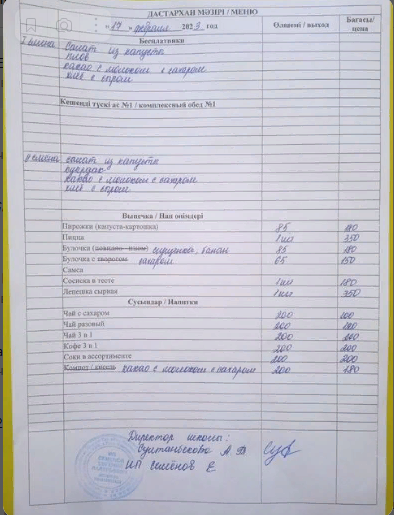 ДАСТАРХАН МӘЗІРІ / МЕНЮ
: «17» февраля 2023 год
Өлшемі / выход
Бағасы/ цена
Бесплатники
I смена Салат из капусты
плов
какао с молоком и сахаром
хлеб с отруб
Кешенді түскі ас №1 / комплексный обед №1
II смена Салат из капусты
куырдак
какао с молоком и сахаром
хлеб с отруб
Выпечка / Нан өнімдері
Пирожки (капуста-картошка) 85 180
Пицца 1шт 350
Булочка 85 180
Булочка с творогом сахаром 65 150
Самса
Сосиска в тесте 1шт 180
Лепешка сырная 1шт 350
Сусындар / Напитки
Чай с сахаром 200 100
Чай разовый 200
Чай 3 в 1 200
Кофе 3 в 1 200 200
Соки в ассортименте 200 200
Компот / кисель какао с молоком и сахаром 200 180
Директор школы:
А
ИП Семёнов Е